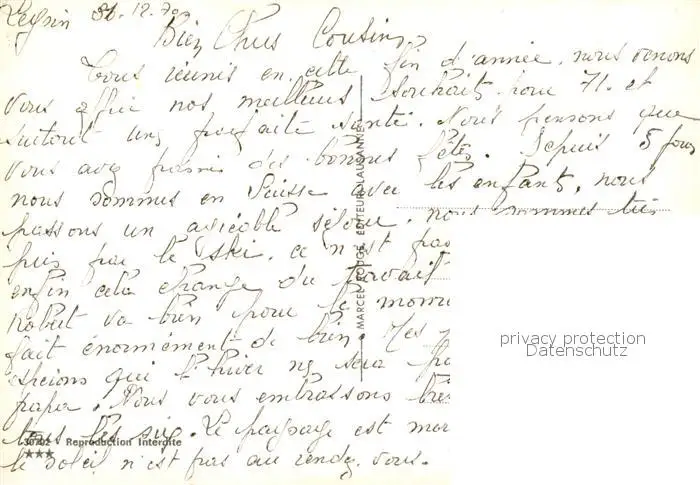 Leysin 31.12.70
Bien Chers Cousins
Tous réunis en cette fin d'année, nous venons
vous offrir nos meilleurs souhaits pour 71. et
surtout une parfaite santé. Nous pensons que
vous avez passé des bonnes fêtes. Depuis 5 jours
nous sommes en Suisse avec les enfants, nous
passons un agréable séjour. nous sommes
pris par le ski. ce n'est pas
enfin cela change du travail
Robert va bien pour le mom
fait énormément de bien. Mes
espérons que l'hiver ne sera
papa. Nous vous embrassons
tous les six. Le paysage est
le soleil n'est pas au rendez vous.
MARCEL ROUGE, ÉDITEUR, LAUSANNE
30702 Reproduction Interdite
★★★
privacy protection
Datenschutz